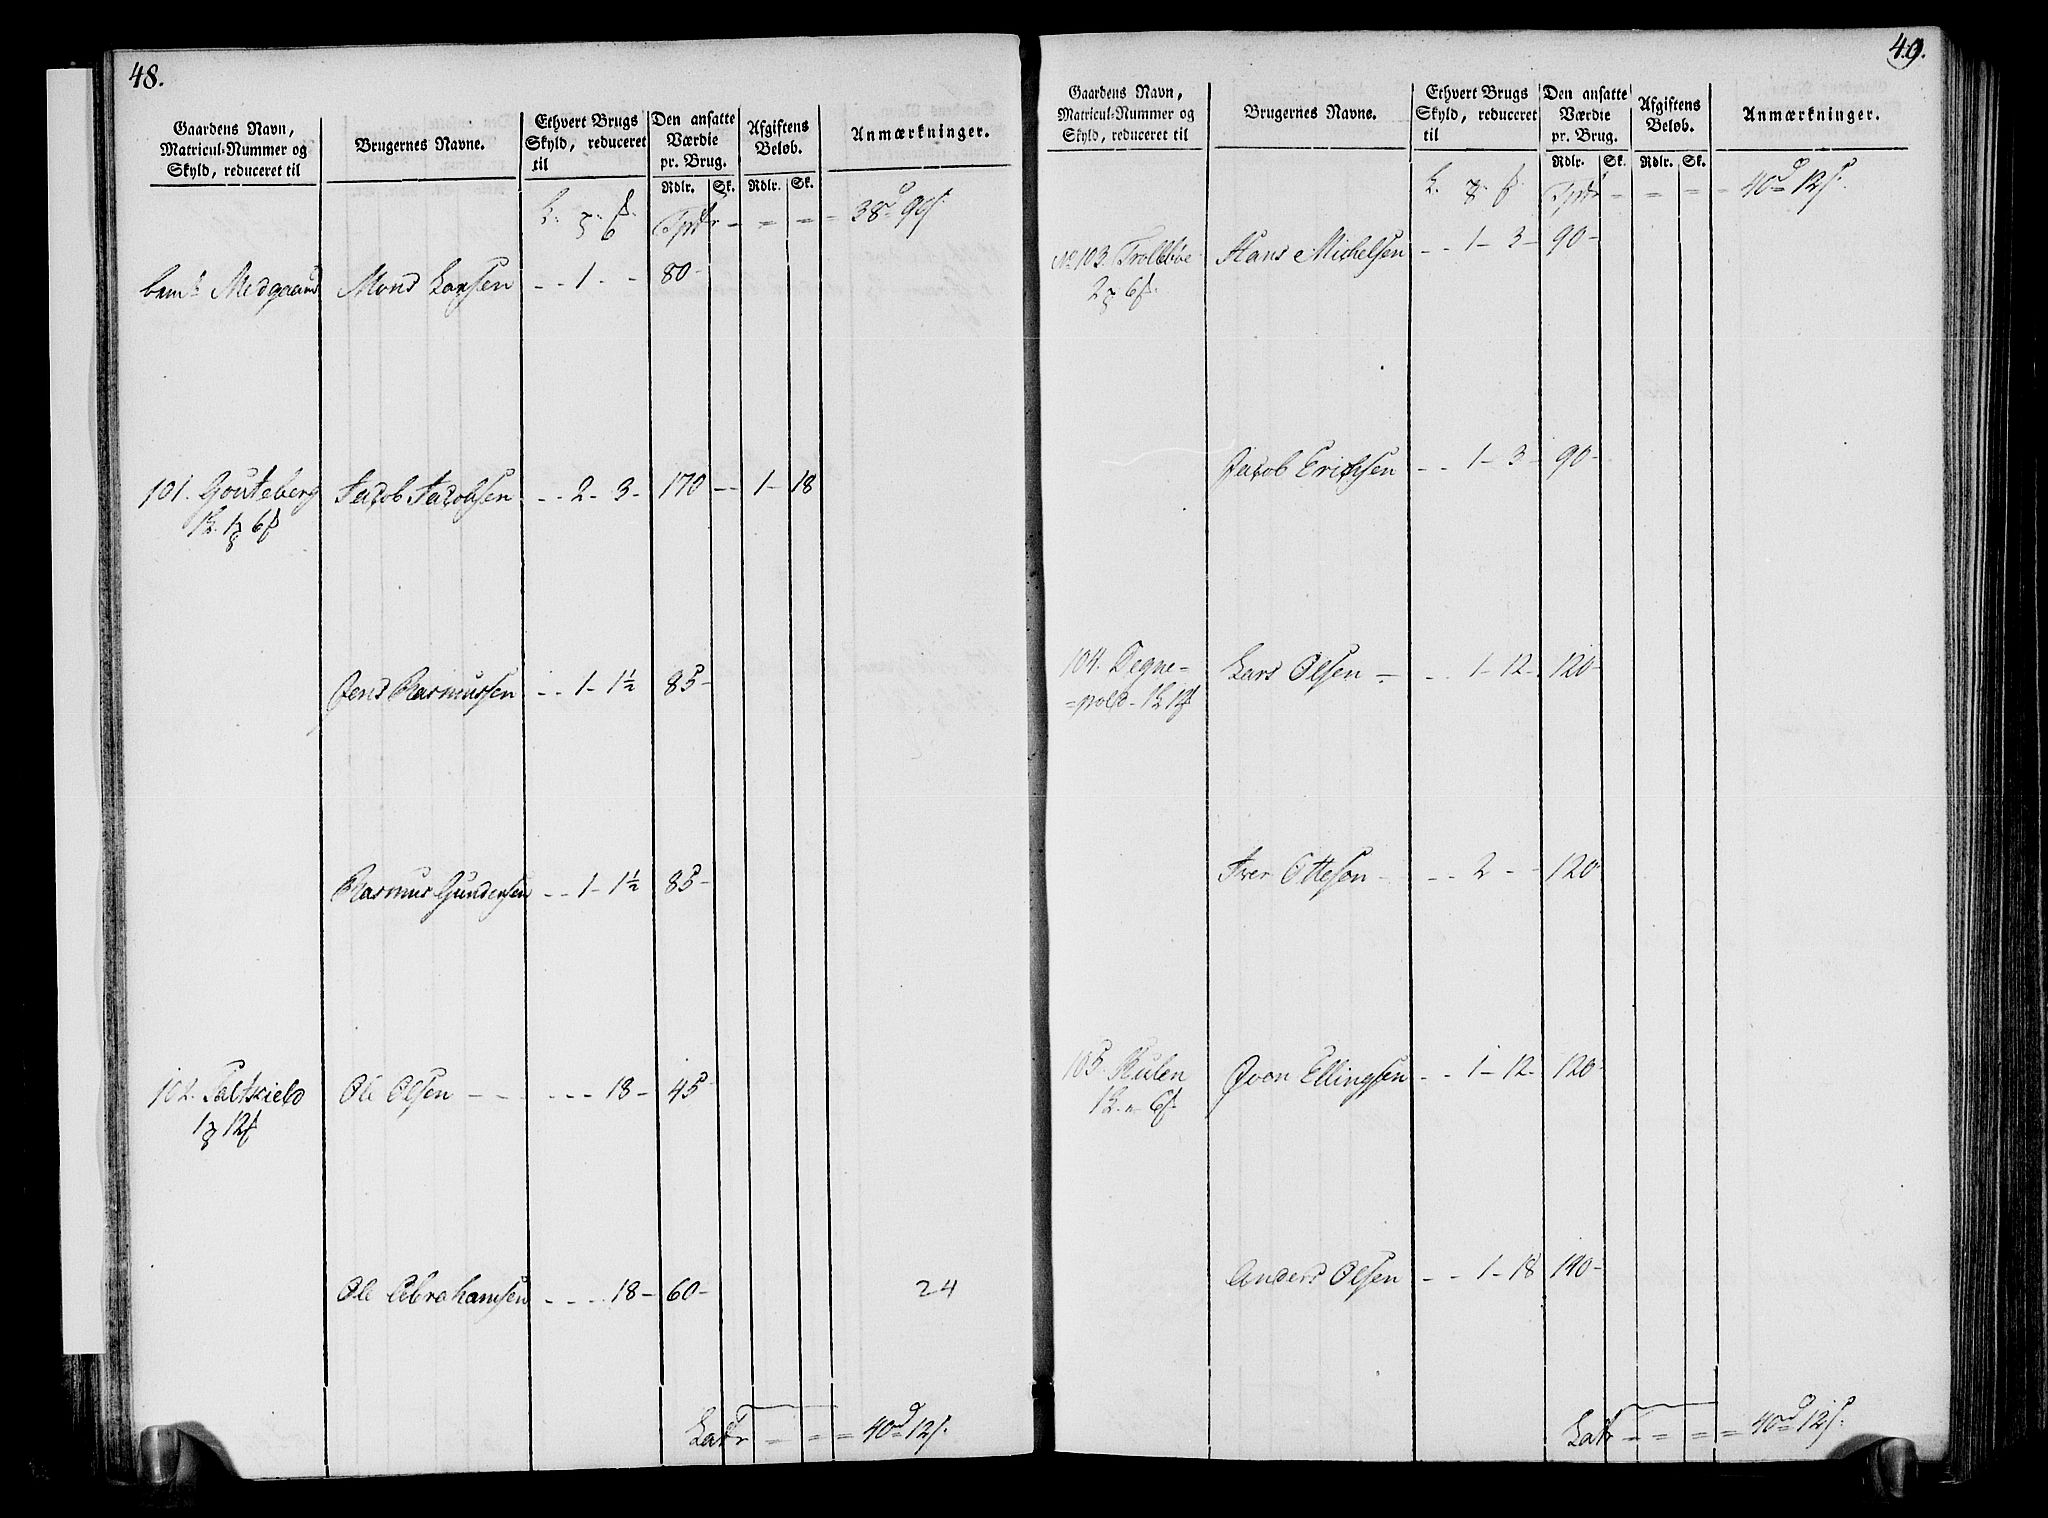 48.
Gaardens Navn, Matricul-Nummer og Skyld, reduceret til
Brugernes Navne.
Ethvert Brugs Skyld, reduceret til
Den ansatte Værdie pr. Brug.
Afgiftens Beløb.
Anmærkninger.
Rdlr. Sk. Rdlr. Sk.
38d 90s.
Medgaard Mons Larsen - - 1 - - 80 -
101. Gouteberg Jacob Jacobsen - - 2 - 3 - 170 - - 1 - 18
Jens Rasmussen - - 1 - 1½ 85 -
Rasmus Gundersen - - 1 - 1½ 85 -
102. Saltskield Ole Olsen - - - - - - 18 - 45 -
Ole Abrahamsen - - - 18 - 60 -
24
Latr = = = = 40d 12s.
49.
Gaardens Navn, Matricul-Nummer og Skyld, reduceret til
Brugernes Navne.
Ethvert Brugs Skyld, reduceret til
Den ansatte Værdie pr. Brug.
Afgiftens Beløb.
Anmærkninger.
Rdlr. Sk. Rdlr. Sk.
40d 12s.
No 103. Trollebøe Hans Michelsen - - 1 - 3 - 90 -
Jacob Erichsen - - 1 - 3 - 90 -
104. Degne=
=pold Lars Olsen - - - 1 - 12 - 120 -
Iver Ottesen - - - 2 - - 120 -
105. Hulen Øvon Ellingsen - - 1 - 12 - 120 -
Anders Olsen - - 1 - 18 140 -
Latr = = = = 40d 12s.